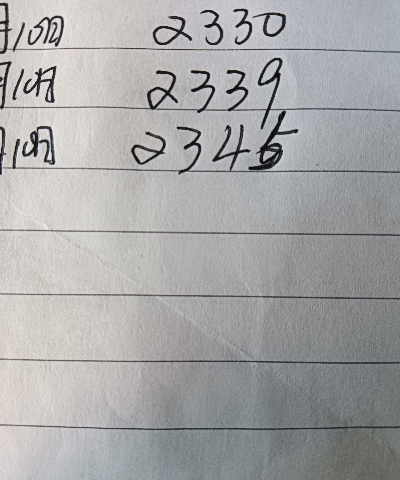 月10日 2330
月10日 2339
月10日